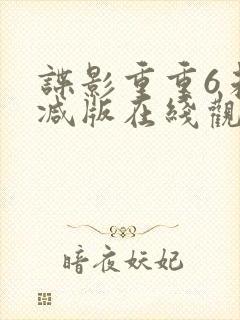 諜影重重6未
减版在綫觀
暗夜妖妃